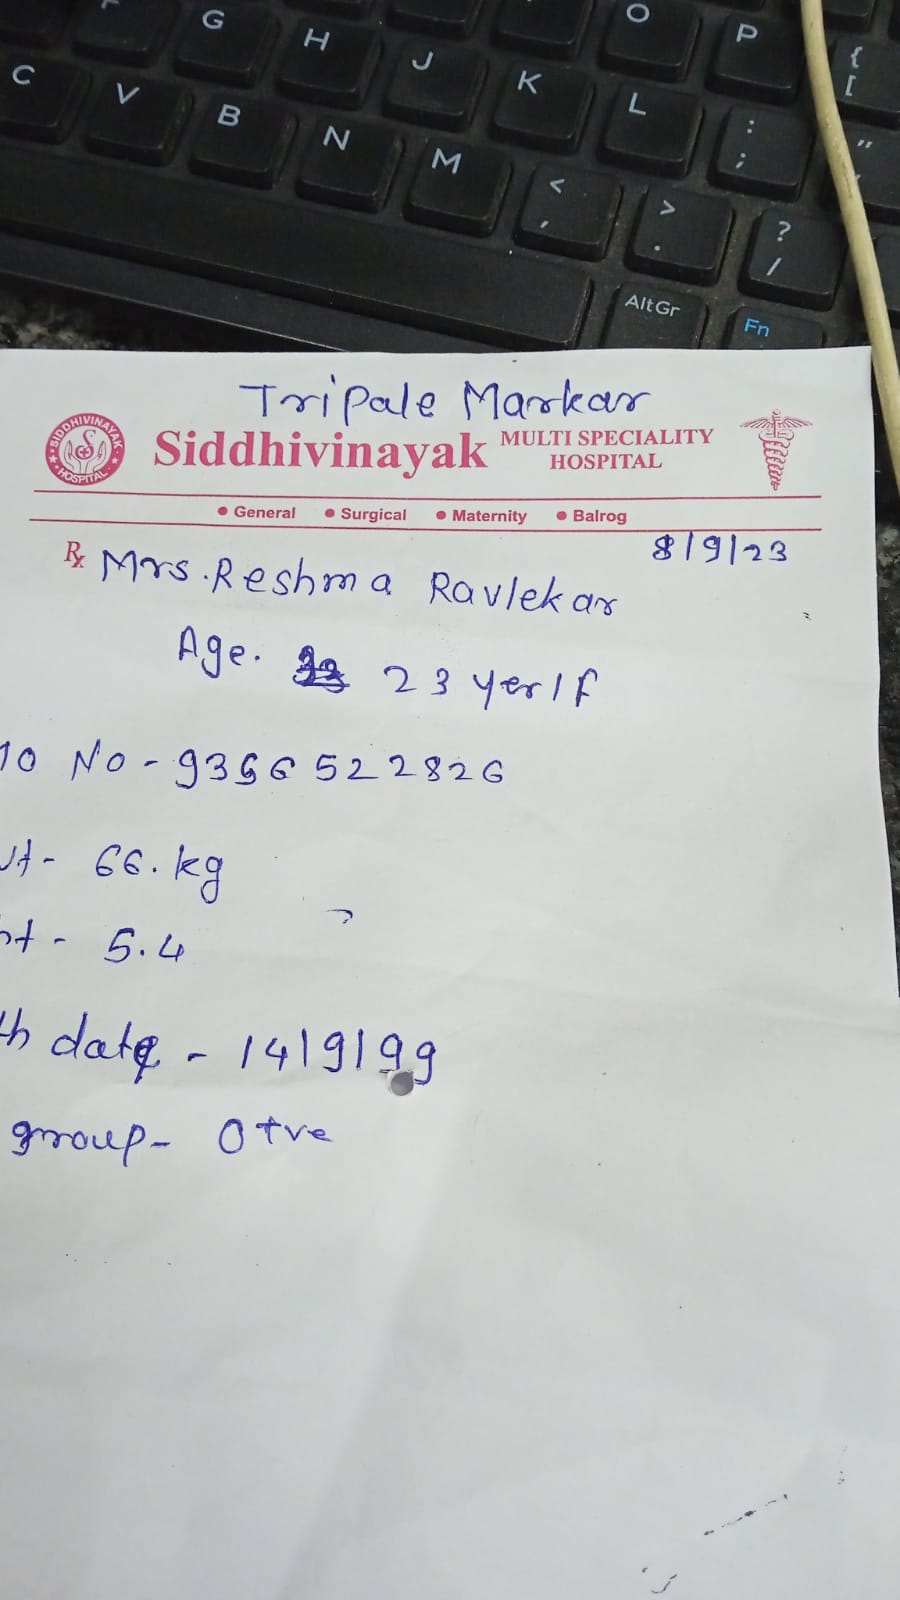 G H J K L O P { [
C V B N M < , > . : ; ? / "
AltGr Fn
Tripale Markar
SIDDHIVINAYAK HOSPITAL
Siddhivinayak MULTI SPECIALITY HOSPITAL
• General • Surgical • Maternity • Balrog
8/9/23
Rx Mrs. Reshma Ravlekar
Age. 23 yer/f
No - 9366522826
66. kg
5.4
date - 14/9/99
group - O +ve